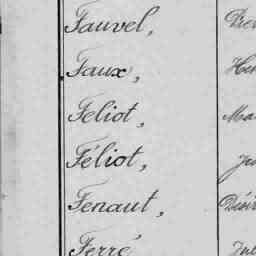 Fauvel,
Faux,
Feliot,
Féliot,
Fenaut,
Ferré